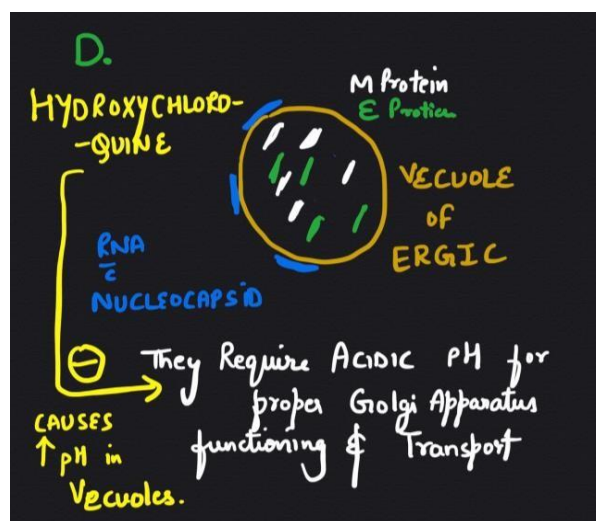 D.
HYDROXYCHLORO-
-QUINE
M Protein
E Protien
VECUOLE
of
ERGIC
RNA
c̅
NUCLEOCAPSID
They Require ACIDIC pH for
proper Golgi Apparatus
functioning & Transport
CAUSES
↑ pH in
Vecuoles.